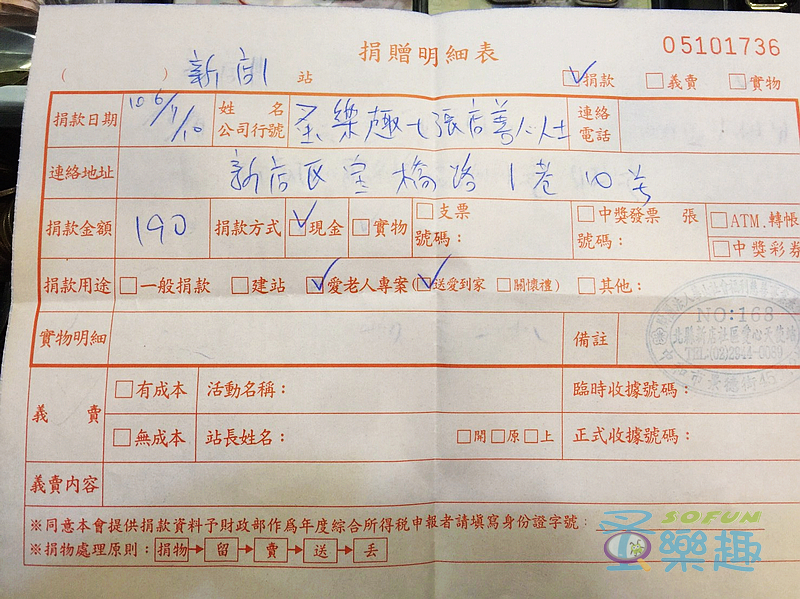 捐贈明細表
05101736
( ) 新店1 站
捐款 義賣 實物
捐款日期 106/1/10 姓名 公司行號 圣樂趣七張店善心人士 連絡電話
連絡地址 新店區寶橋路1巷10号
捐款金額 190 捐款方式 現金 實物 支票號碼： 中獎發票 張 號碼： ATM.轉帳 中獎彩券
捐款用途 一般捐款 建站 愛老人專案(送愛到家 關懷禮) 其他：
NO:168
實物明細 備註
義賣 有成本 活動名稱： 臨時收據號碼：
無成本 站長姓名： 開 原 上 正式收據號碼：
義賣內容
※同意本會提供捐款資料予財政部作為年度綜合所得稅申報者請填寫身份證字號：
※捐物處理原則：捐物→留→賣→送→丟
SOFUN
圣樂趣